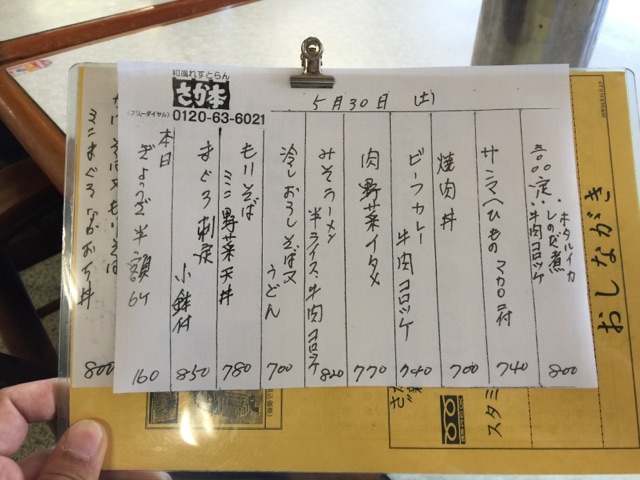 和風れすとらん
さか本
(フリーダイヤル) 0120-63-6021
5月30日 (土)
ホタルイカ
しのだ煮
牛肉コロッケ
800
サンマひもの マカロニ付
740
焼肉丼
700
ビーフカレー
牛肉コロッケ
740
肉野菜イタメ
770
みそラーメン
半ライス 牛肉コロッケ
820
冷しおろしそば又
うどん
700
もりそば
ミニ野菜天丼
780
まぐろ刺定
小鉢付
850
本日
ぎょうざ半額 6ケ
160
ミニまぐろ
800
おしながき
スタミ